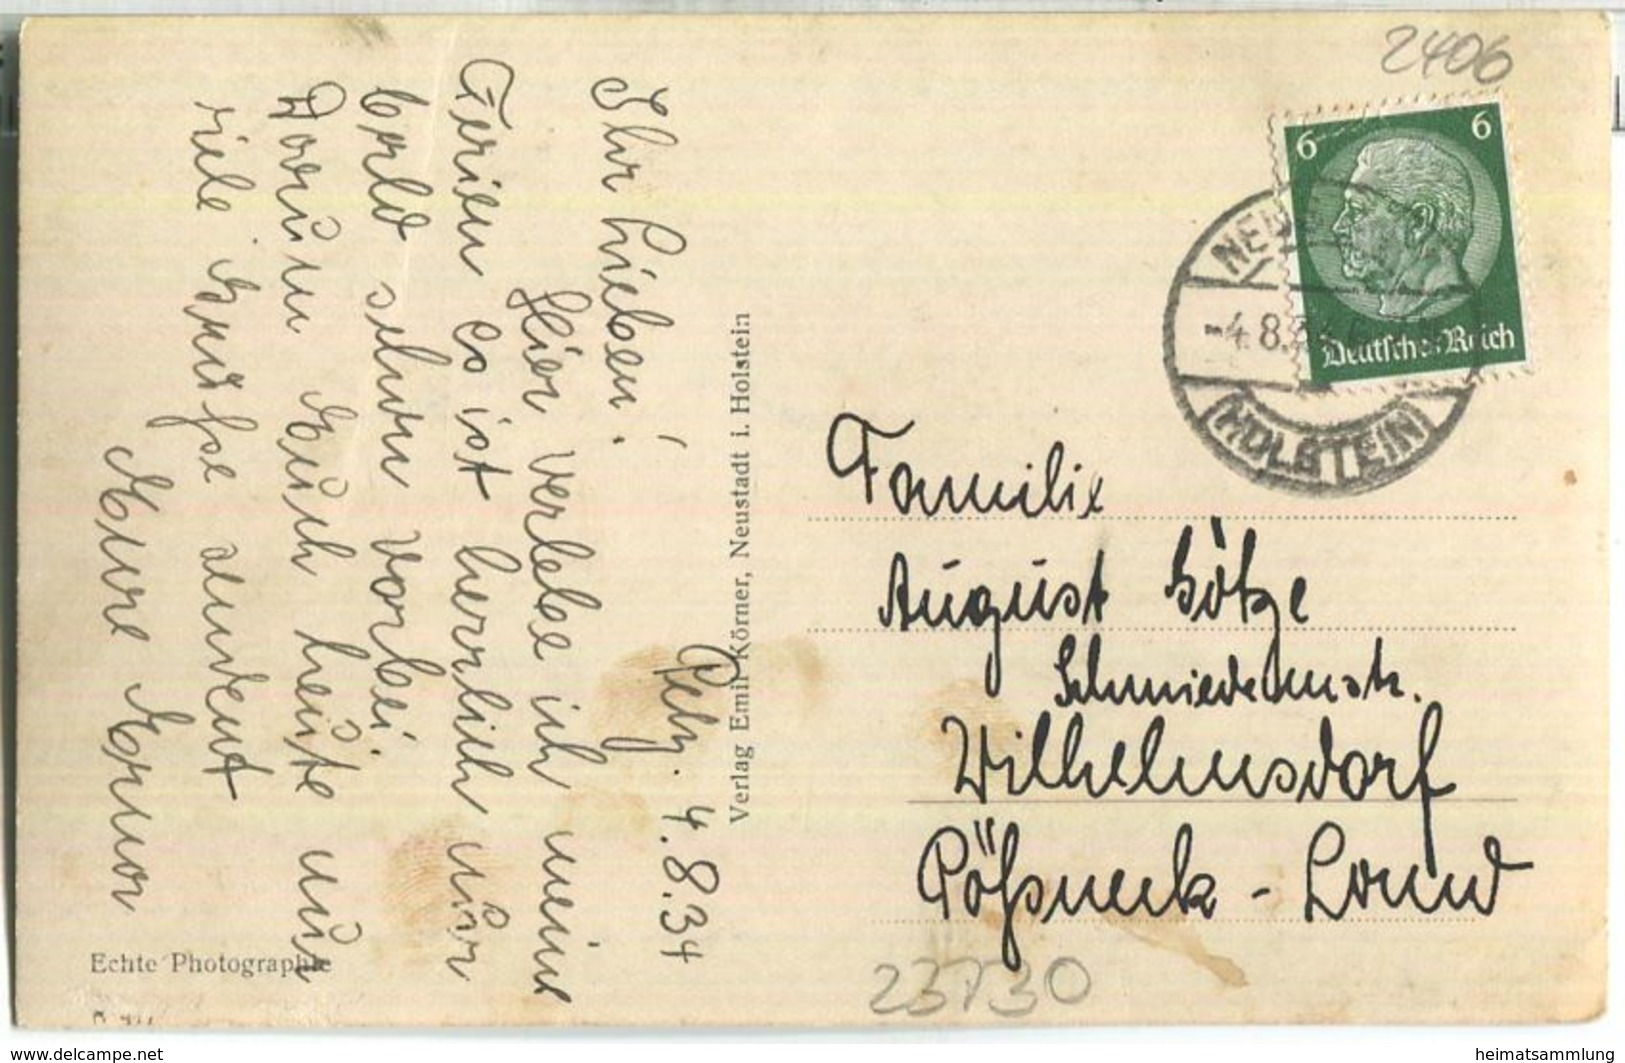 Pelz. 4.8.34
Ihr Lieben!
Hier verlebe ich meine
Ferien es ist herrlich nur
bald schon vorbei.
Darum Euch heute nun
viele Grüße sendet
Eure Erna
Echte Photographie
Verlag Emil Körner, Neustadt i. Holstein
2406
6 6
Deutsches Reich
-4.8.34
HOLSTEIN
Familie
August Götze
Schmiedemstr.
Wilhelmsdorf
Pößneck - Land
23730
www.delcampe.net
heimatsammlung